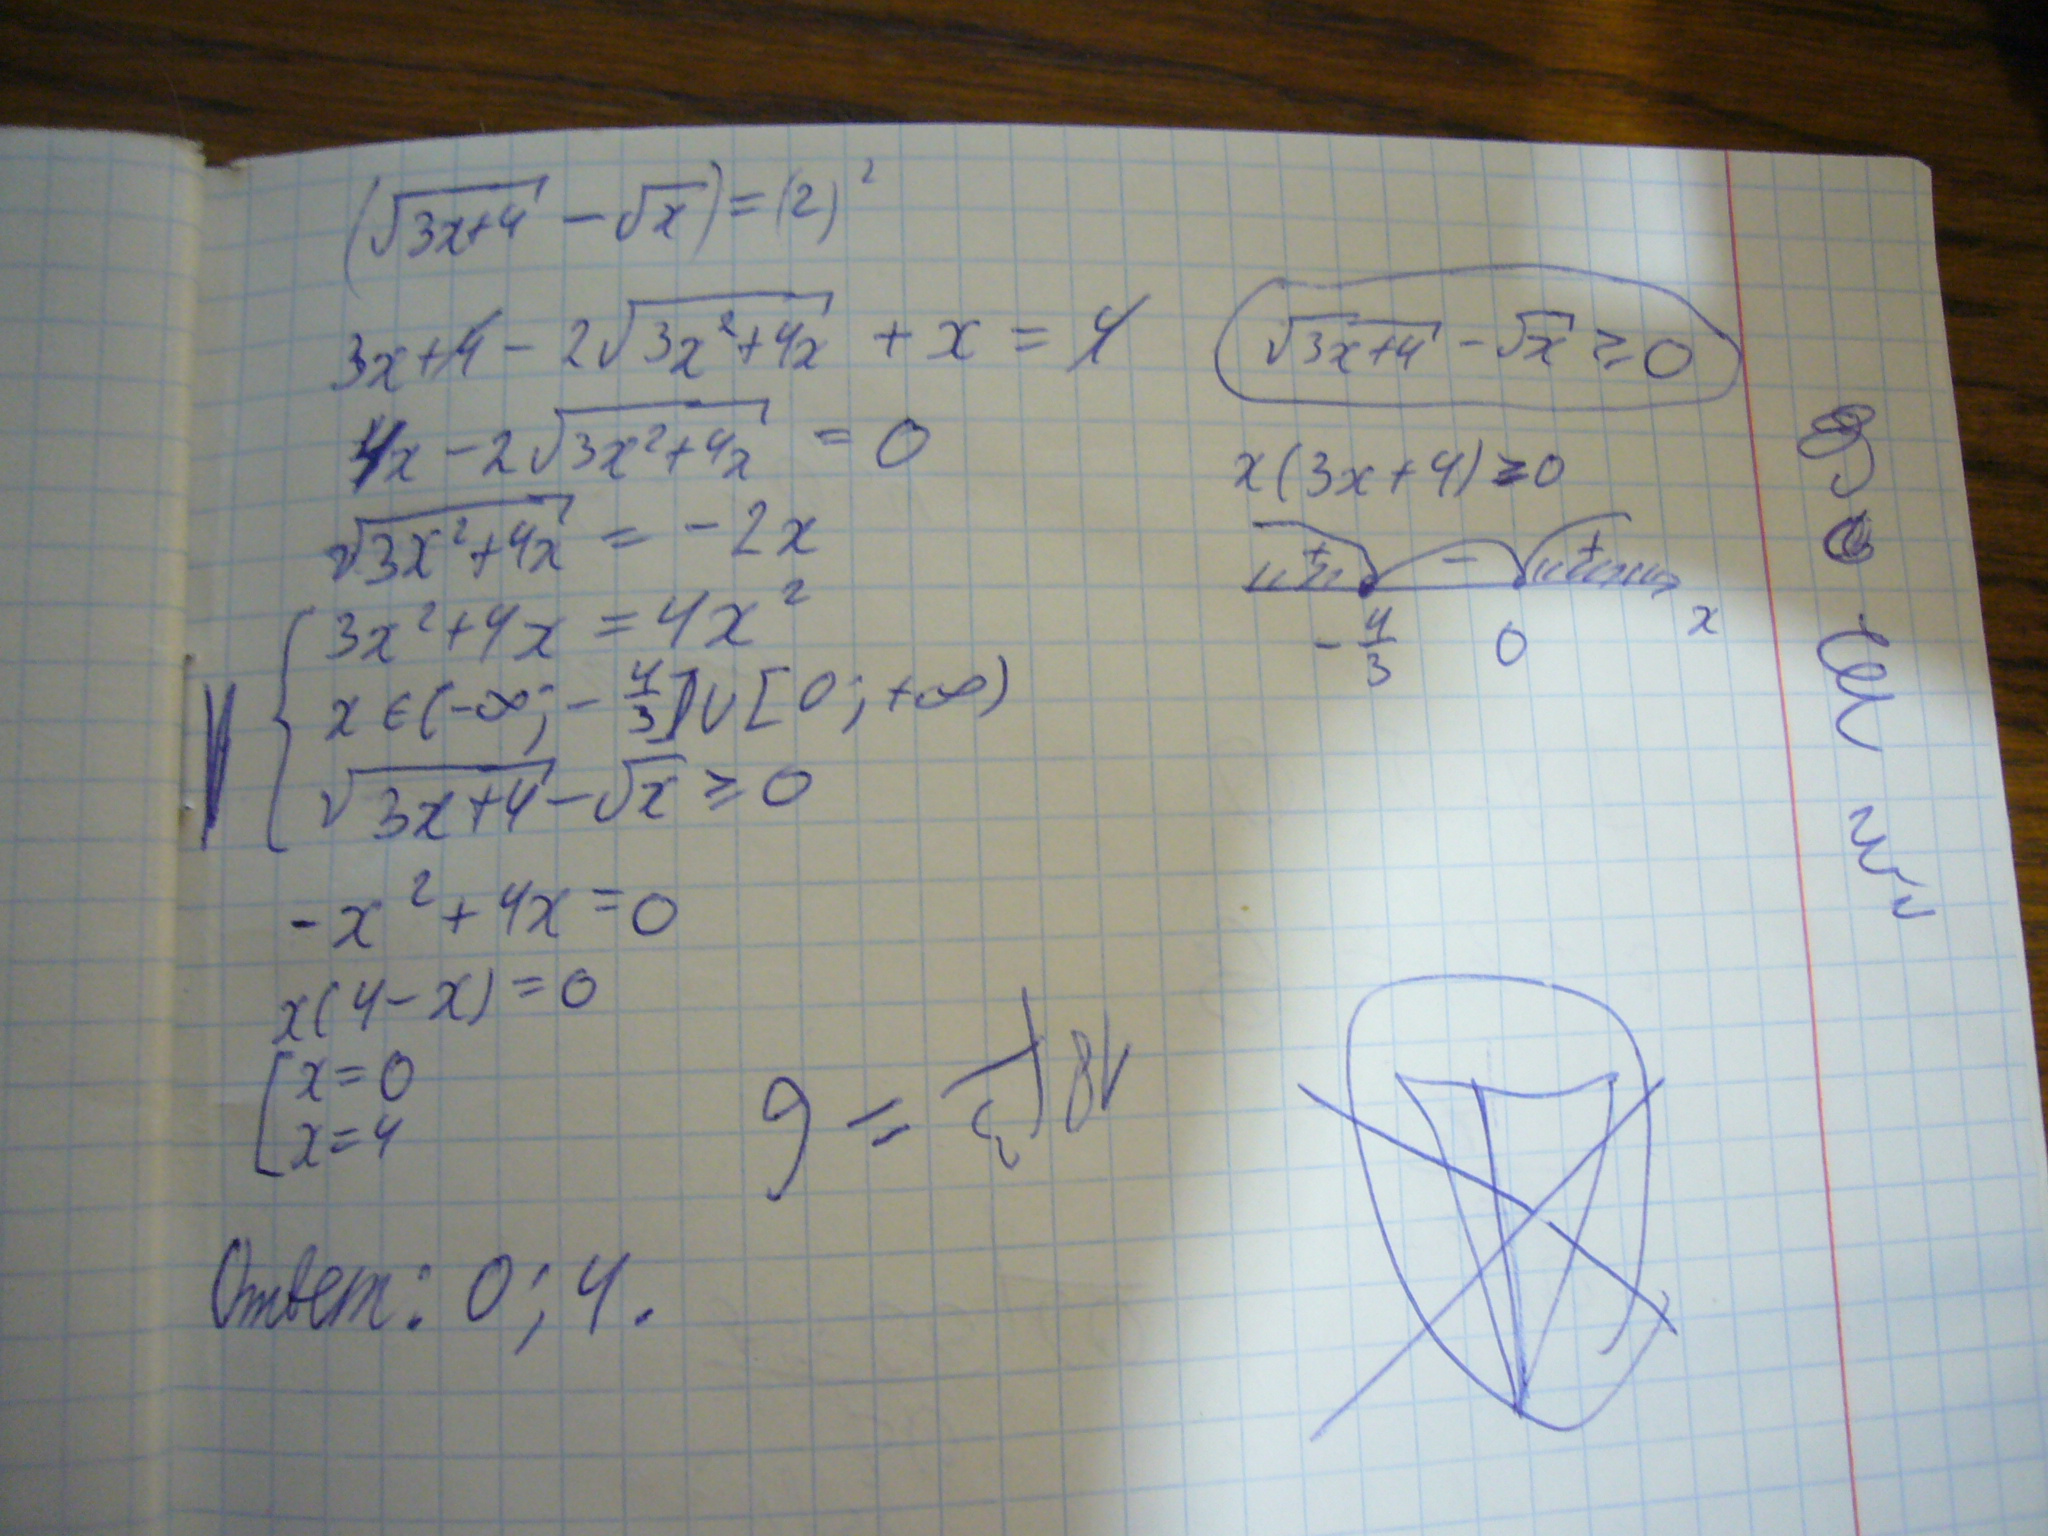 (√3x+4 − √x) = (2)²
3x+4 − 2√3x²+4x + x = 4
4x − 2√3x²+4x = 0
√3x²+4x = −2x
3x²+4x = 4x²
x ∈ (−∞; −4/3] ∪ [0; +∞)
√3x+4 − √x ≥ 0
−x² + 4x = 0
x(4−x) = 0
x = 0
x = 4
Ответ: 0; 4.
√3x+4 − √x ≥ 0
x(3x+4) ≥ 0
+ − +
−4/3 0 x